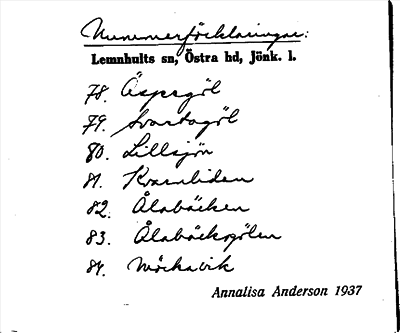 Nummerförklaringar:
Lemnhults sn, Östra hd, Jönk. l.
78. Äspegöl
79. Svartagöl
80. Lillsjön
81. Kvarnliden
82. Ålabäcken
83. Ålabäcksgölen
84. Möckavik
Annalisa Anderson 1937